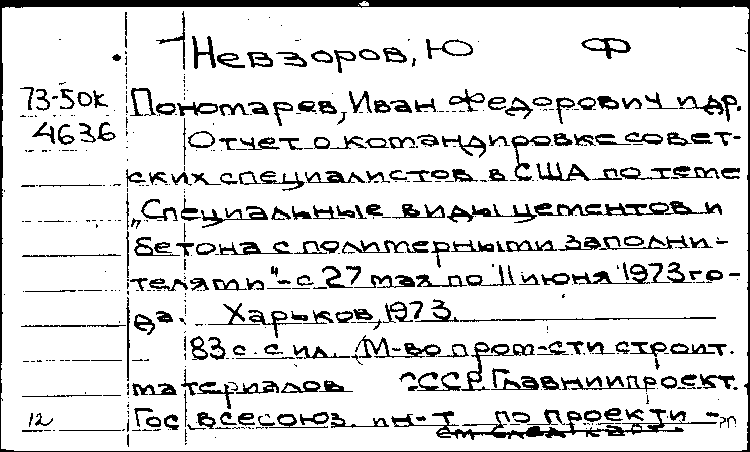 Невзоров, Ю Ф
73-50к Пономарев, Иван Федорович и др.
4636 Отчет о командировке совет-
ских специалистов в США по теме
„Специальные виды цементов и
бетона с полимерными заполни-
телями" - с 27 мая по 11 июня 1973 го-
да. Харьков, 1973.
83 с. с ил. (М-во пром-сти строит.
материалов СССР. Главниипроект.
12 Гос всесоюз. ин-т по проекти-
см след карт